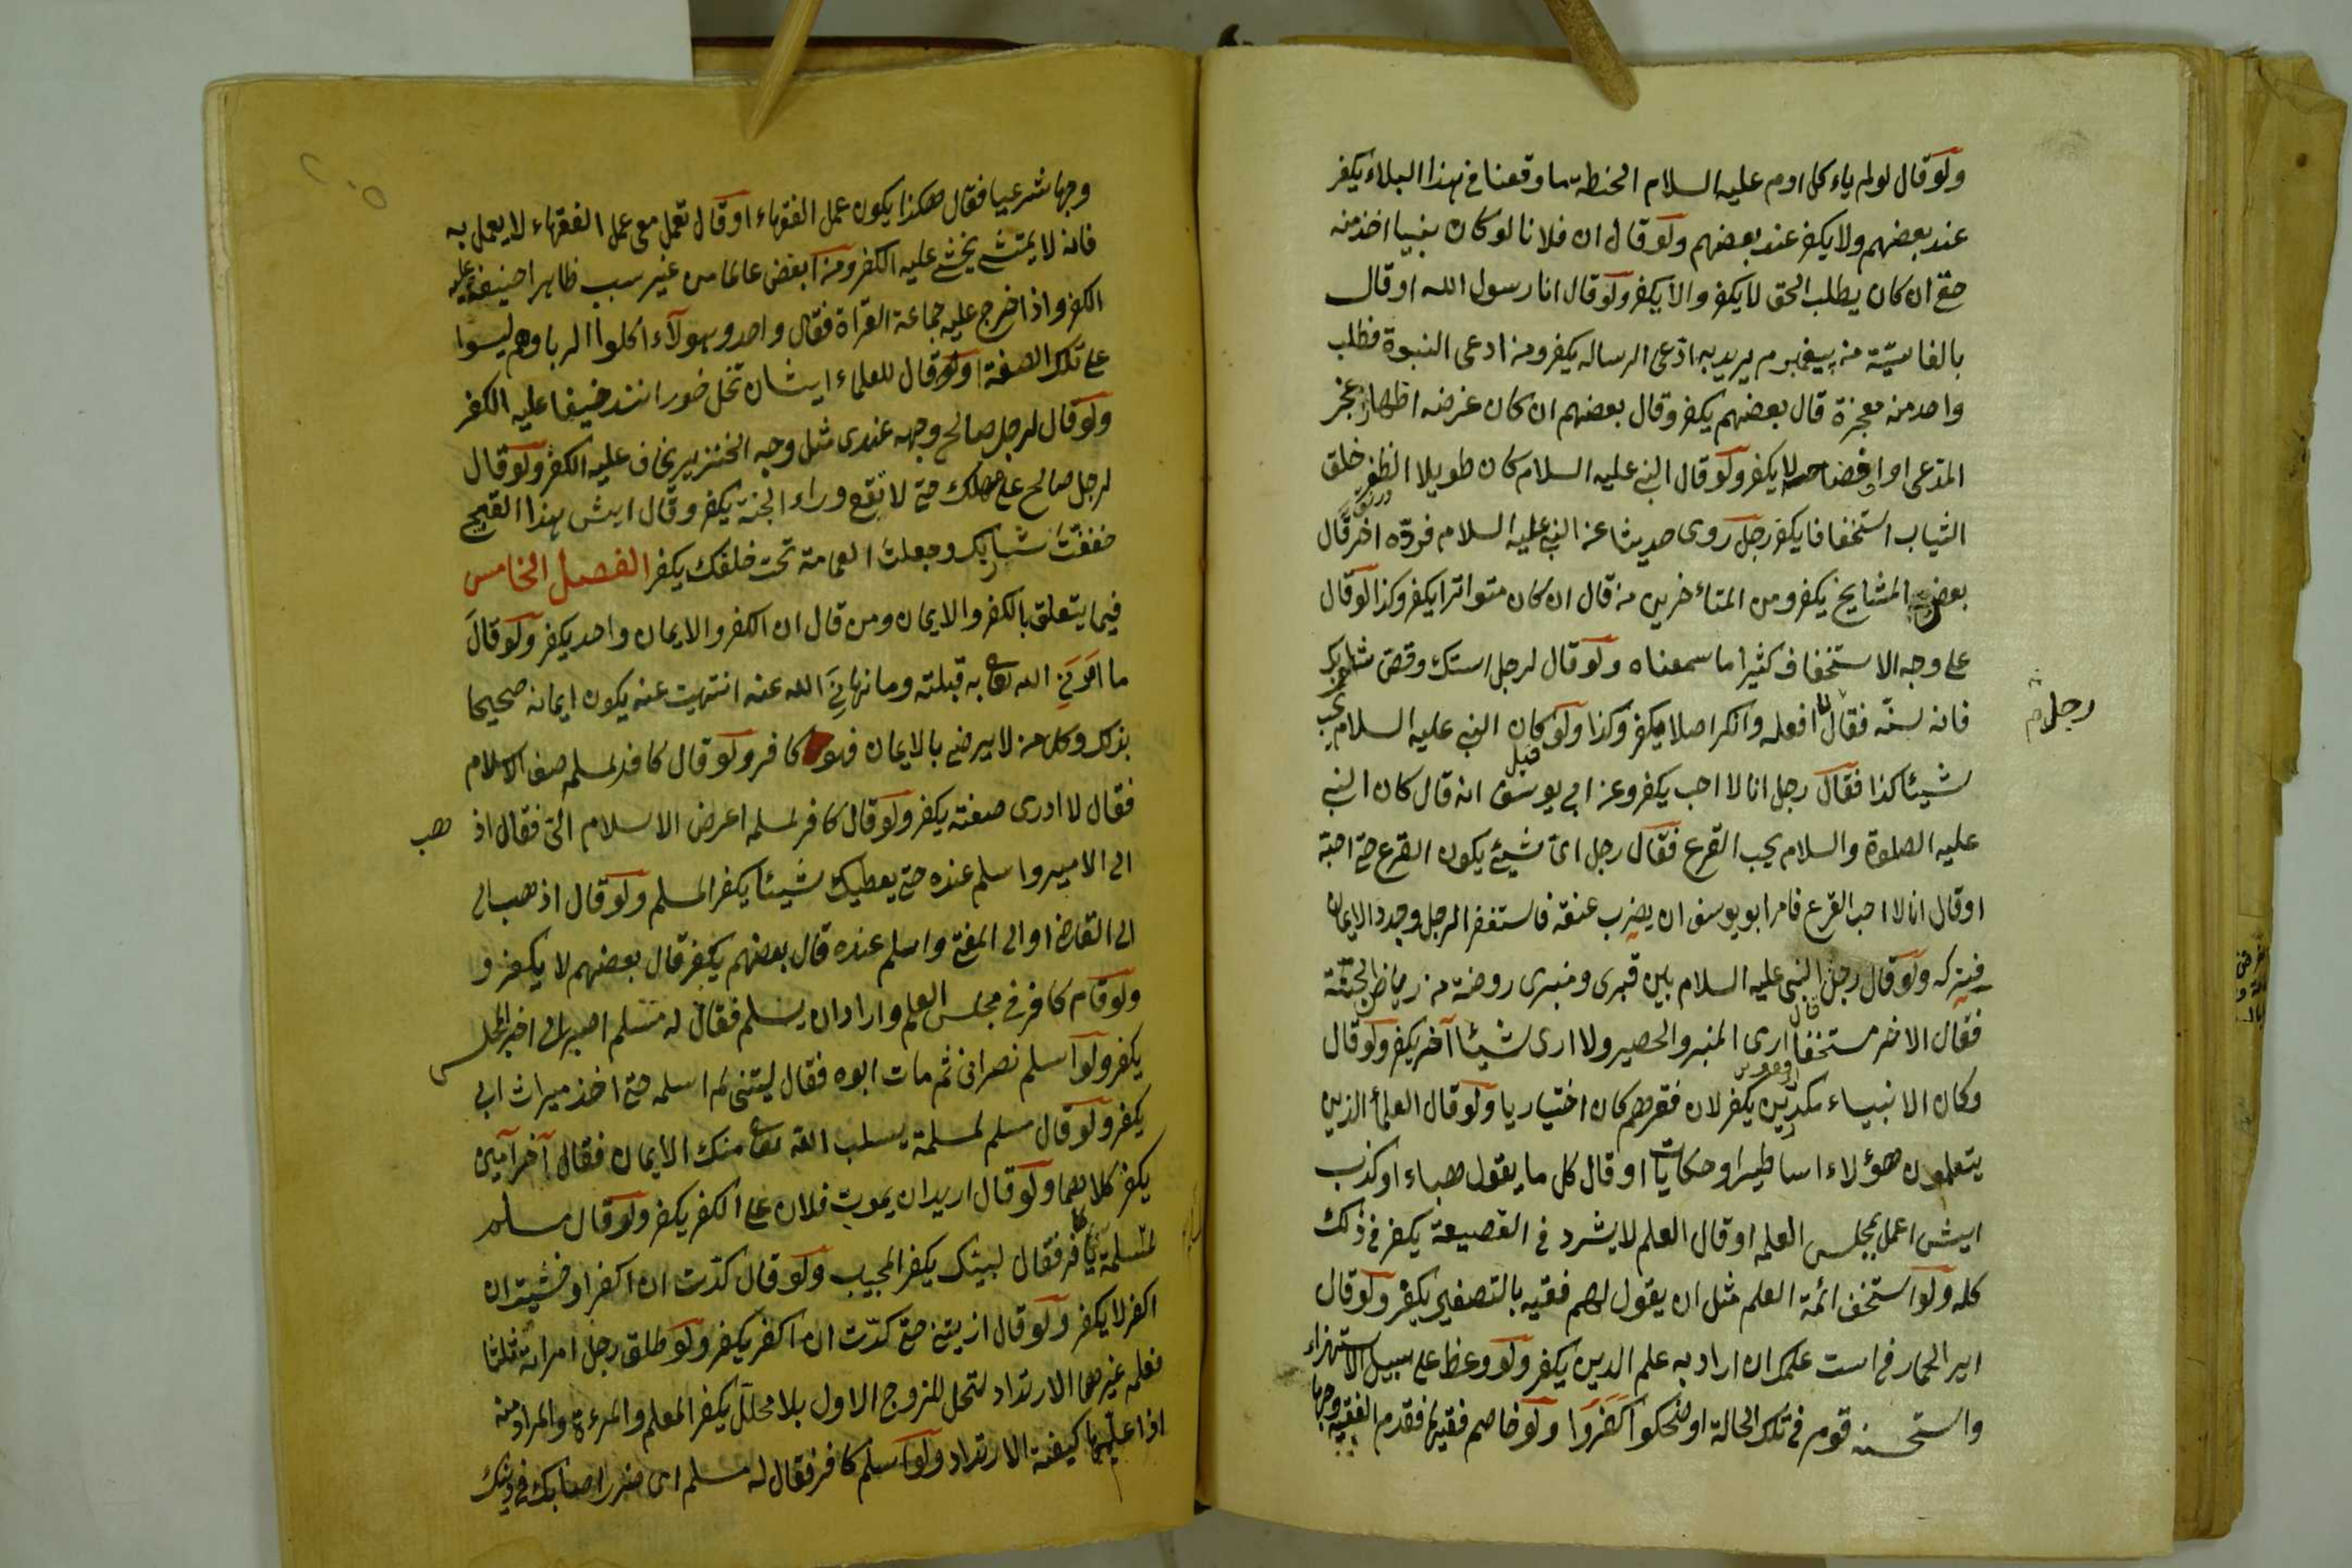 ولو قال لو لم ياءكل ادم عليه السلام الحنطة ما وقعنا في هذا البلاء يكفر
عند بعضهم ولا يكفر عند بعضهم ولو قال ان فلانا لو كان نبيا اخذ منه
حقي ان كان يطلب الحق لا يكفر والا يكفر ولو قال انا رسول الله او قال
بالفارسيّة من پيغمبرم يريد به ادّعى الرسالة يكفر ومن ادعى النبوة فطلب
واحد منه معجزة قال بعضهم يكفر وقال بعضهم ان كان غرضه اظهار عجز
المدّعى او افضاحه لا يكفر ولو قال النبي عليه السلام كان طويلا الظفر خلق
الثياب استخفافا يكفر رجل روى حديثا عن النبي عليه السلام فردّه اخر قال
بعض المشايخ يكفر ومن المتاءخرين من قال ان كان متواترا يكفر وكذا لو قال
على وجه الاستخفاف كثيرا ما سمعناه ولو قال لرجل استك وقص شاربك
فانه سنّة فقال لا افعله وانكر اصلا يكفر وكذا ولو قيل كان النبي عليه السلام يحب
رجل
شيئا كذا فقال رجل انا لا احب يكفر وعن ابي يوسف انه قال كان النبي
عليه الصلوة والسلام يحب القرع فقال رجل اى شيئ يكون القرع حتى احبه
او قال انا لا احب القرع فامر ابو يوسف ان يضرب عنقه فاستغفر الرجل وجدد الايمان
فتركه ولو قال رجل قال النبي عليه السلام بين قبرى ومنبرى روضة من رياض الجنّة
فقال الاخر مستخفا ارى المنبر والحصير ولا ارى شيئا آخر يكفر ولو قال
وكان الانبياء مكدّين يكفر لان فقرهم كان اختياريا ولو قال العلماء الذين
يتعلمون هؤلاء اساطيرا وحكايات او قال كل ما يقول هباء او كذب
ايش اعمل بمجلس العلم او قال العلم لا يشرد في القصيعة يكفر في ذلك
كله ولو استخف ائمة العلم مثل ان يقول لهم فقيه بالتصغير يكفر ولو قال
اير الحمار في است علمك ان اراد به علم الدين يكفر ولو وعظ على سبيل الاستهزاء
واستحسنه قوم في تلك الحالة او ضحكوا كفروا ولو خاصم فقيها فقدم الفقيه وجها
وجها شرعيا فقال هكذا يكون عمل الفقهاء او قال تعمل معي عمل الفقهاء لا يعمل به
فانه لا يمشي يخشى عليه الكفر ومن ابغض عالما من غير سبب ظاهر اخيف عليه
الكفر واذا خرج عليه جماعة القراة فقال واحد وهولاء اكلوا الربا وهم ليسوا
على تلك الصفة او لو قال للعلماء ايشان نخل خورانند خيف عليه الكفر
ولو قال لرجل صالح وجهه عندى مثل وجه الخنزير يخاف عليه الكفر ولو قال
لرجل صالح على مهلك حتى لا تقع وراء الجنة يكفر وقال ايش هذا القبيح
خففت شاربك وجعلت العمامة تحت خلقك يكفر الفصل الخامس
فيما يتعلق بالكفر والايمان ومن قال ان الكفر والايمان واحد يكفر ولو قال
ما امرني الله تعالى به قبلته وما نهاني الله عنه انتهيت عنه يكون ايمانه صحيحا
بذلك وكل من لا يرضى بالايمان فهو كافر ولو قال كافر لمسلم صف الاسلام
فقال لا ادرى صفته يكفر ولو قال كافر لمسلم اعرض الاسلام الىّ فقال اذ
هب
الى الامير واسلم عنده حتى يعطيك شيئا يكفر المسلم ولو قال اذهب الى
الى القاضي او الى المفتي واسلم عنده قال بعضهم يكفر قال بعضهم لا يكفر و
ولو قام كافر في مجلس العلم واراد ان يسلم فقال له مسلم اصبر الى اخر المجلس
يكفر ولو اسلم نصراني ثم مات ابوه فقال ليتني لم اسلم حتى اخذ ميراث ابي
يكفر ولو قال مسلم لمسلمة يسلب الله تعالى منك الايمان فقال آخر آمين
يكفر كلاهما ولو قال اريد ان يموت فلان على الكفر يكفر ولو قال مسلم
لمسلمة يا كافر فقال لبيك يكفر المجيب ولو قال كدّت ان اكفر او خشيت ان
اكفر لا يكفر ولو قال اذيتني حتى كدّت ان اكفر يكفر ولو طلق رجل امراته ثلثا
فعلم غيرهما الارتداد لتحل للزوج الاول بلا محلل يكفر المعلم والمرءة والمراد منه
اذا علّمها كيفية الارتداد ولو اسلم كافر فقال له مسلم اى ضرر اصابك في دينك